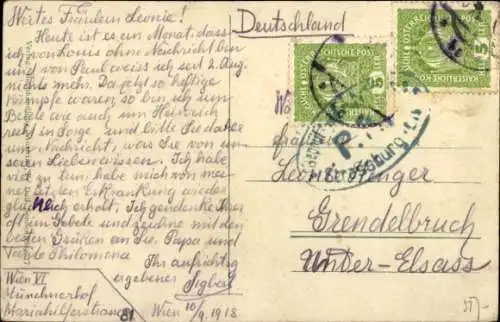 Wertes Fräulein Leonie!
Heute ist es ein Monat, dass
ich von Louis ohne Nachricht bin
und von Paul weiss ich seit 2. Aug.
nichts mehr. Da jetzt so heftige
Kämpfe waren, so bin ich um
Beide wie auch um Heinrich
recht in Sorge und bitte Sie daher
um Nachricht, was Sie von un
seren Lieben wissen. Ich habe
viel zu tun, habe mich von mei
ner letzten Erkrankung wieder
glücklich erholt. Ich gedenke Ihrer
oft im Gebete und zeichne mit den
besten Grüßen an Sie, Papa und
Tante Philomena
Ihr aufrichtig
ergebener
Wien VI
Münchnerhof
Mariahilferstrasse 81
Wien 10/9. 1918
Deutschland
KAISERLICHE KÖNIGLICHE ÖSTERREICHISCHE POST
5
KAISERLICHE KÖNIGLICHE ÖSTERREICHISCHE POST
5
P.K.
Strassburg
Fräulein
Leonie
Grendelbruch
Unter-Elsass